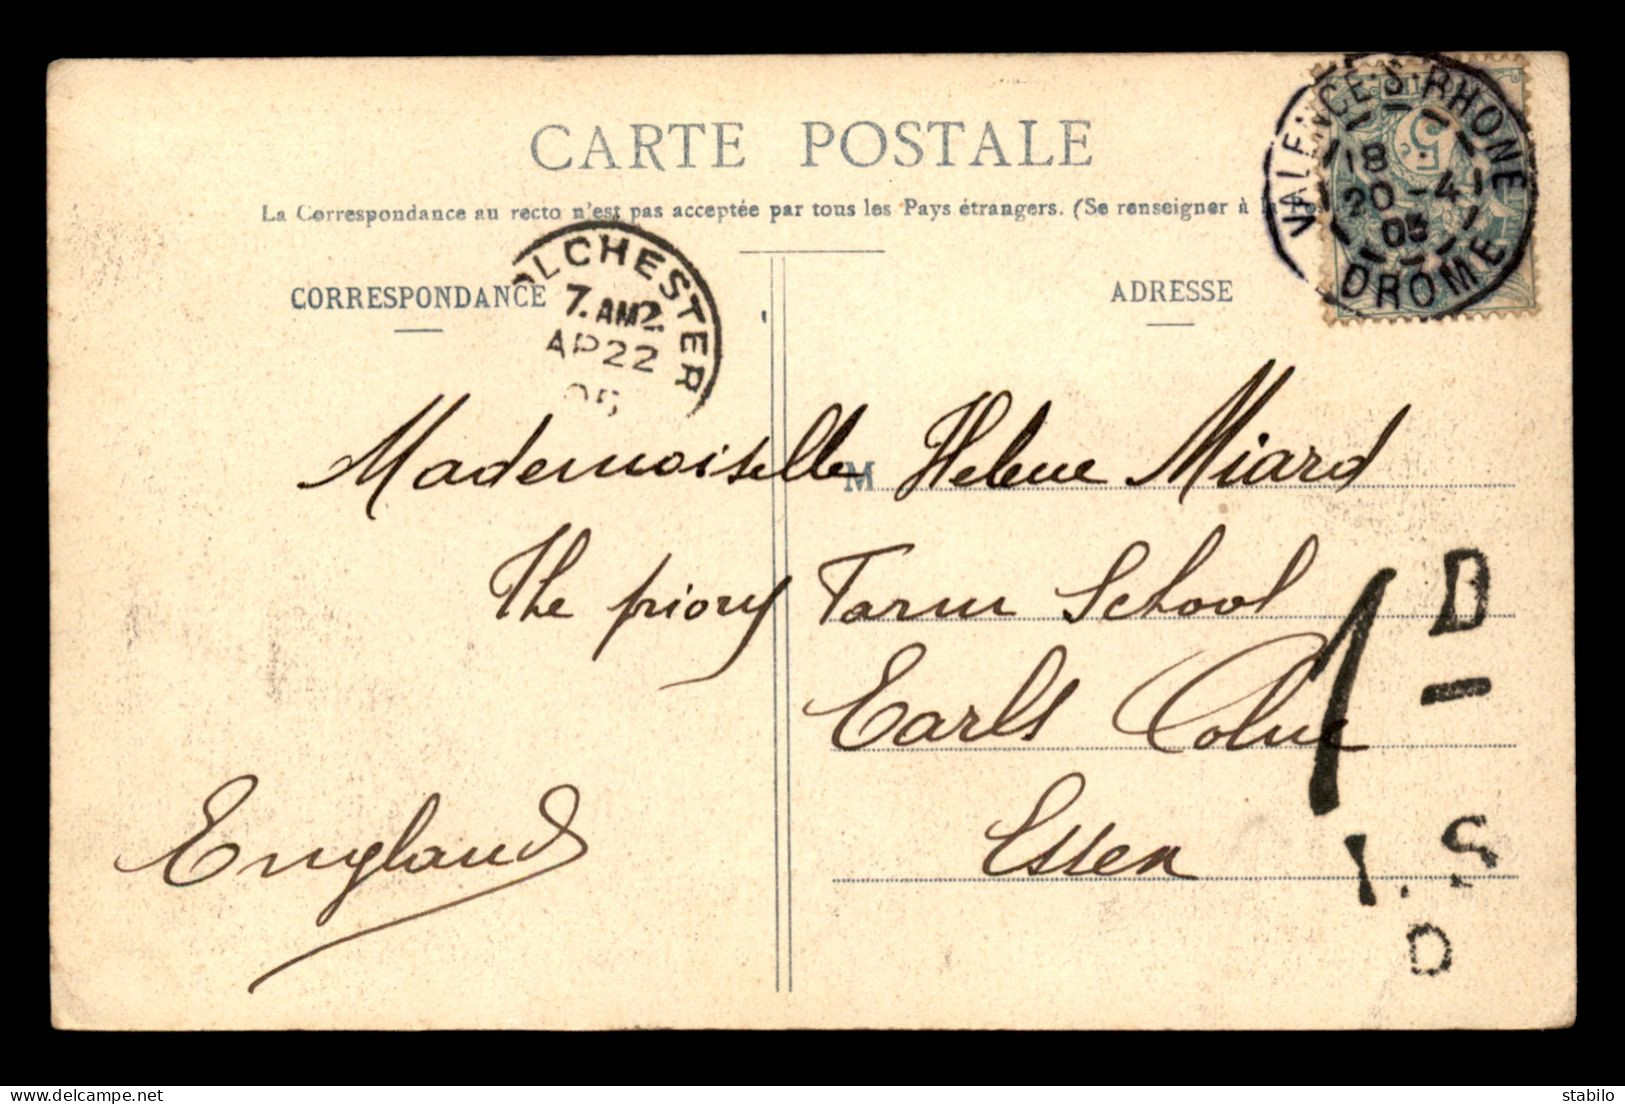 CARTE POSTALE
La Correspondance au recto n'est pas acceptée par tous les Pays étrangers. (Se renseigner à
VALENCE-S-RHONE
18
20 -4
05
DROME
5
LCHESTER
7. AM
AP 22
05
CORRESPONDANCE
ADRESSE
Mademoiselle M Helene Miard
The priory Farm School
Earls Colne
Essex
England
1 D
I.S
D
stabilo | delcampe.net